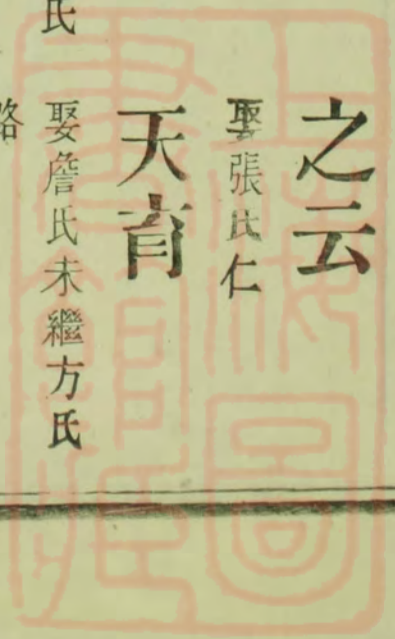 之云
娶張氏仁
天育
娶詹氏未繼方氏
氏